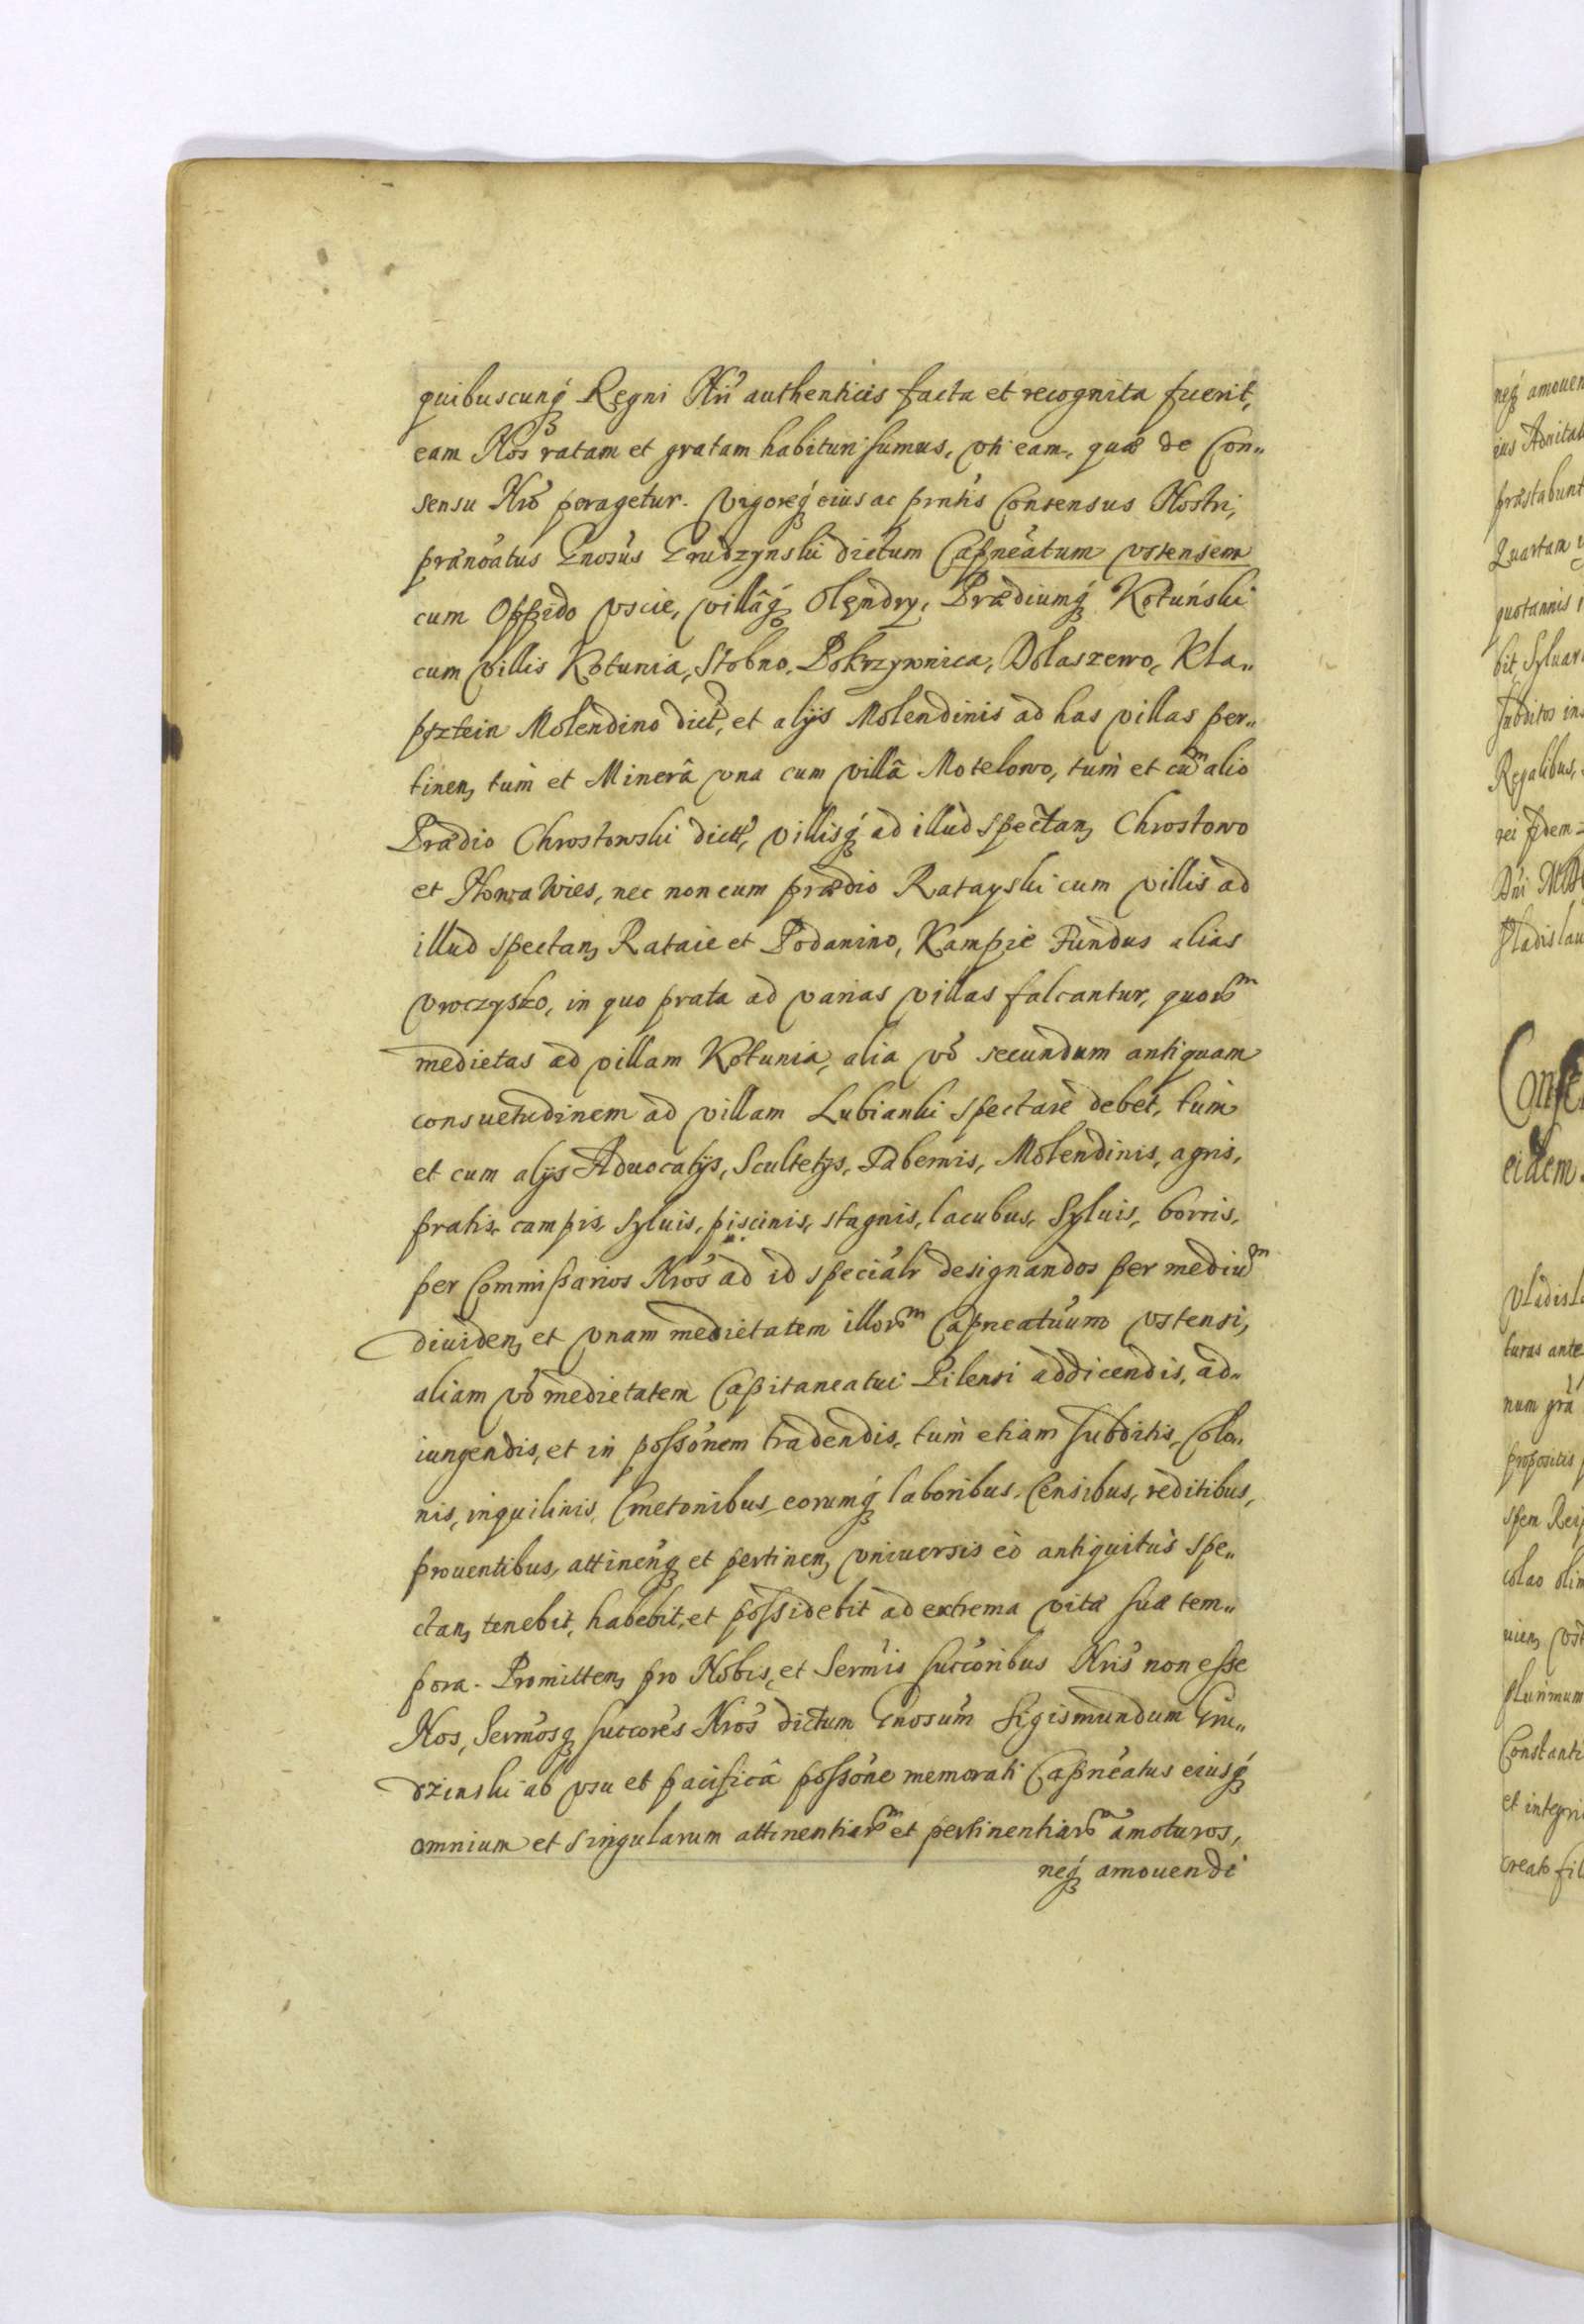 quibuscunq́ꝫ Regni Nrĩ authenticis facta et recognita fuerit,
eam Nos ratam et gratam habituri sumus, vti eam, quæ de Con„
sensu Nrõ peragetur. Vigoreq́ꝫ eius ac pr̃ntis Consensus Nostri,
prænoãtus Gnosus Grudzynski dictum Capneãtum vstensem
cum Oppido vscie, villâq́ꝫ Olędry, Prædiumq́ꝫ Kotuński
cum villis Kotunia, Stobno, Pokrzywnica, Dolaszewo, Kla„
psztein Molendino dict, et alijs Molendinis ad has villas per„
tinenꝫ tum et Minerâ vna cum villâ Motelowo, tum et cum alio
Prædio Chrostowski dict, villisq́ꝫ ad illud spectanꝫ Chrostowo
et Nowa Wies, nec non cum prædio Datayski cum villis ad
illud spectanꝫ Rataie et Podanino, Kampie Fundus alias
Vroczysko, in quo prata ad varias villas falcantur, quorum
medietas ad villam Kotunia, alia võ secundum antiquam
consuetudinem ad villam Lubianki spectare debet, tum
et cum alijs Aduocatijs, Scultetijs, Tabernis, Molendinis, agris,
pratis, campis, syluis, piscinis, stagnis, lacubus, Syluis, borris,
per Commissarios Nrõs ad id speciãlr designandos per medium
diuidenꝫ et vnam medietatem illorum Capneatuum vstensi,
aliam võ medietatem Capitaneatui Pilensi addicendis, ad„
iungendis, et in possõnem tradendis, tum etiam subditis, Colo„
nis, inquilinis, Cmetonibus, eorumq́ꝫ laboribus, Censibus, reditibus,
prouentibus, attinenq́ꝫ et pertinenꝫ vniuersis eò antiquitùs spe„
ctanꝫ tenebit, habebit, et possidebit ad extrema vitæ suæ tem„
pora. Promittenꝫ pro Nobis, et Sermĩs succõribus Nrĩs non esse
Nos, Sermõsqꝫ succorẽs Nrõs dictum Gnosũm Sigismundum Gru„
dzinski ab vsu et pacificâ possõne memorati Capneãtus eiusq́ꝫ
omnium et singularum attinentiarum et pertinentiarum amoturos,
neq́ꝫ amouendi
neq́ꝫ amouen
præstabunt
Quartam
quotannis
bit, Syluar
subditos ins
Regalibus,
rei fidem
Vladislau
Conse
eidem
Vladisl
turas ante
num grã
propositis
spem Reip
colao olim
plurimum
Constanti
et integri
creato fil